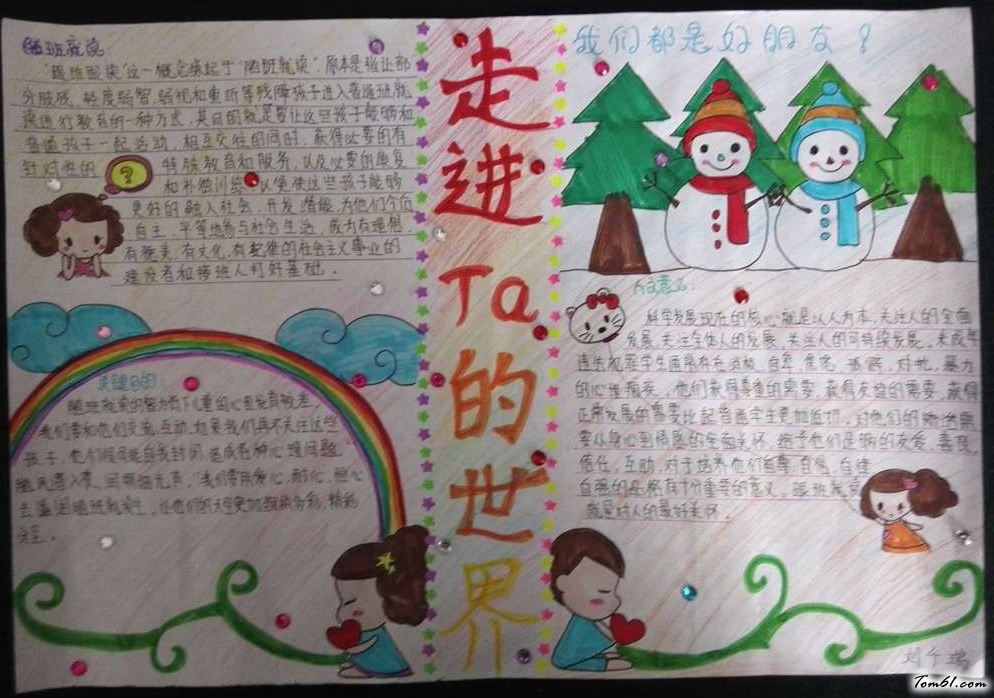 随班就读
"跟班跟读"这一概念缘起于"随班就读",原本是指让部
分肢残、轻度弱智、弱视和重听等残障孩子进入普通班就
读进行教育的一种方式,其目的就是要让这些孩子能够和
普通孩子一起活动、相互交往的同时,获得必要的有
针对性的 特殊教育和服务,以及必要的康复
?
和补偿训练,以便使这些孩子能够
更好的融入社会,开发潜能,为他们今后
自主、平等地参与社会生活,成为有理想、
有道德、有文化、有纪律的社会主义事业的
建设者和接班人打好基础。
关键目的
随班就读的智力低下儿童的心里发育较差,
我们要和他们交流,互动,如果我们再不关注这些
孩子,他们很可能自我封闭,造成各种心理问题。
随风潜入夜,润物细无声。我们要用爱心、耐心、细心
去灌溉随班就读生,让他们的天空更加绚丽多彩,精彩
走
进
Ta
的
世
界
我们都是好朋友?
人文意义
科学发展观的核心就是以人为本,关注人的全面
发展,关注全体人的发展,关注人的可持续发展,未成年
违法犯罪学生通常存在消极、自卑、焦虑、孤僻、对抗、暴力
的心理痼疾,他们获得尊重的需要,获得友谊的需要,获得
正常发展的需要比起普通学生更加迫切,对他们的
要从身心到情感的全面关怀,给予他们足够的友爱、善良、
信任、互助,对于培养他们自尊、自信、自律、
自强的品格有十分重要的意义,跟班就读
就是对人的最好关怀。
刘千瑞
Tom61.com